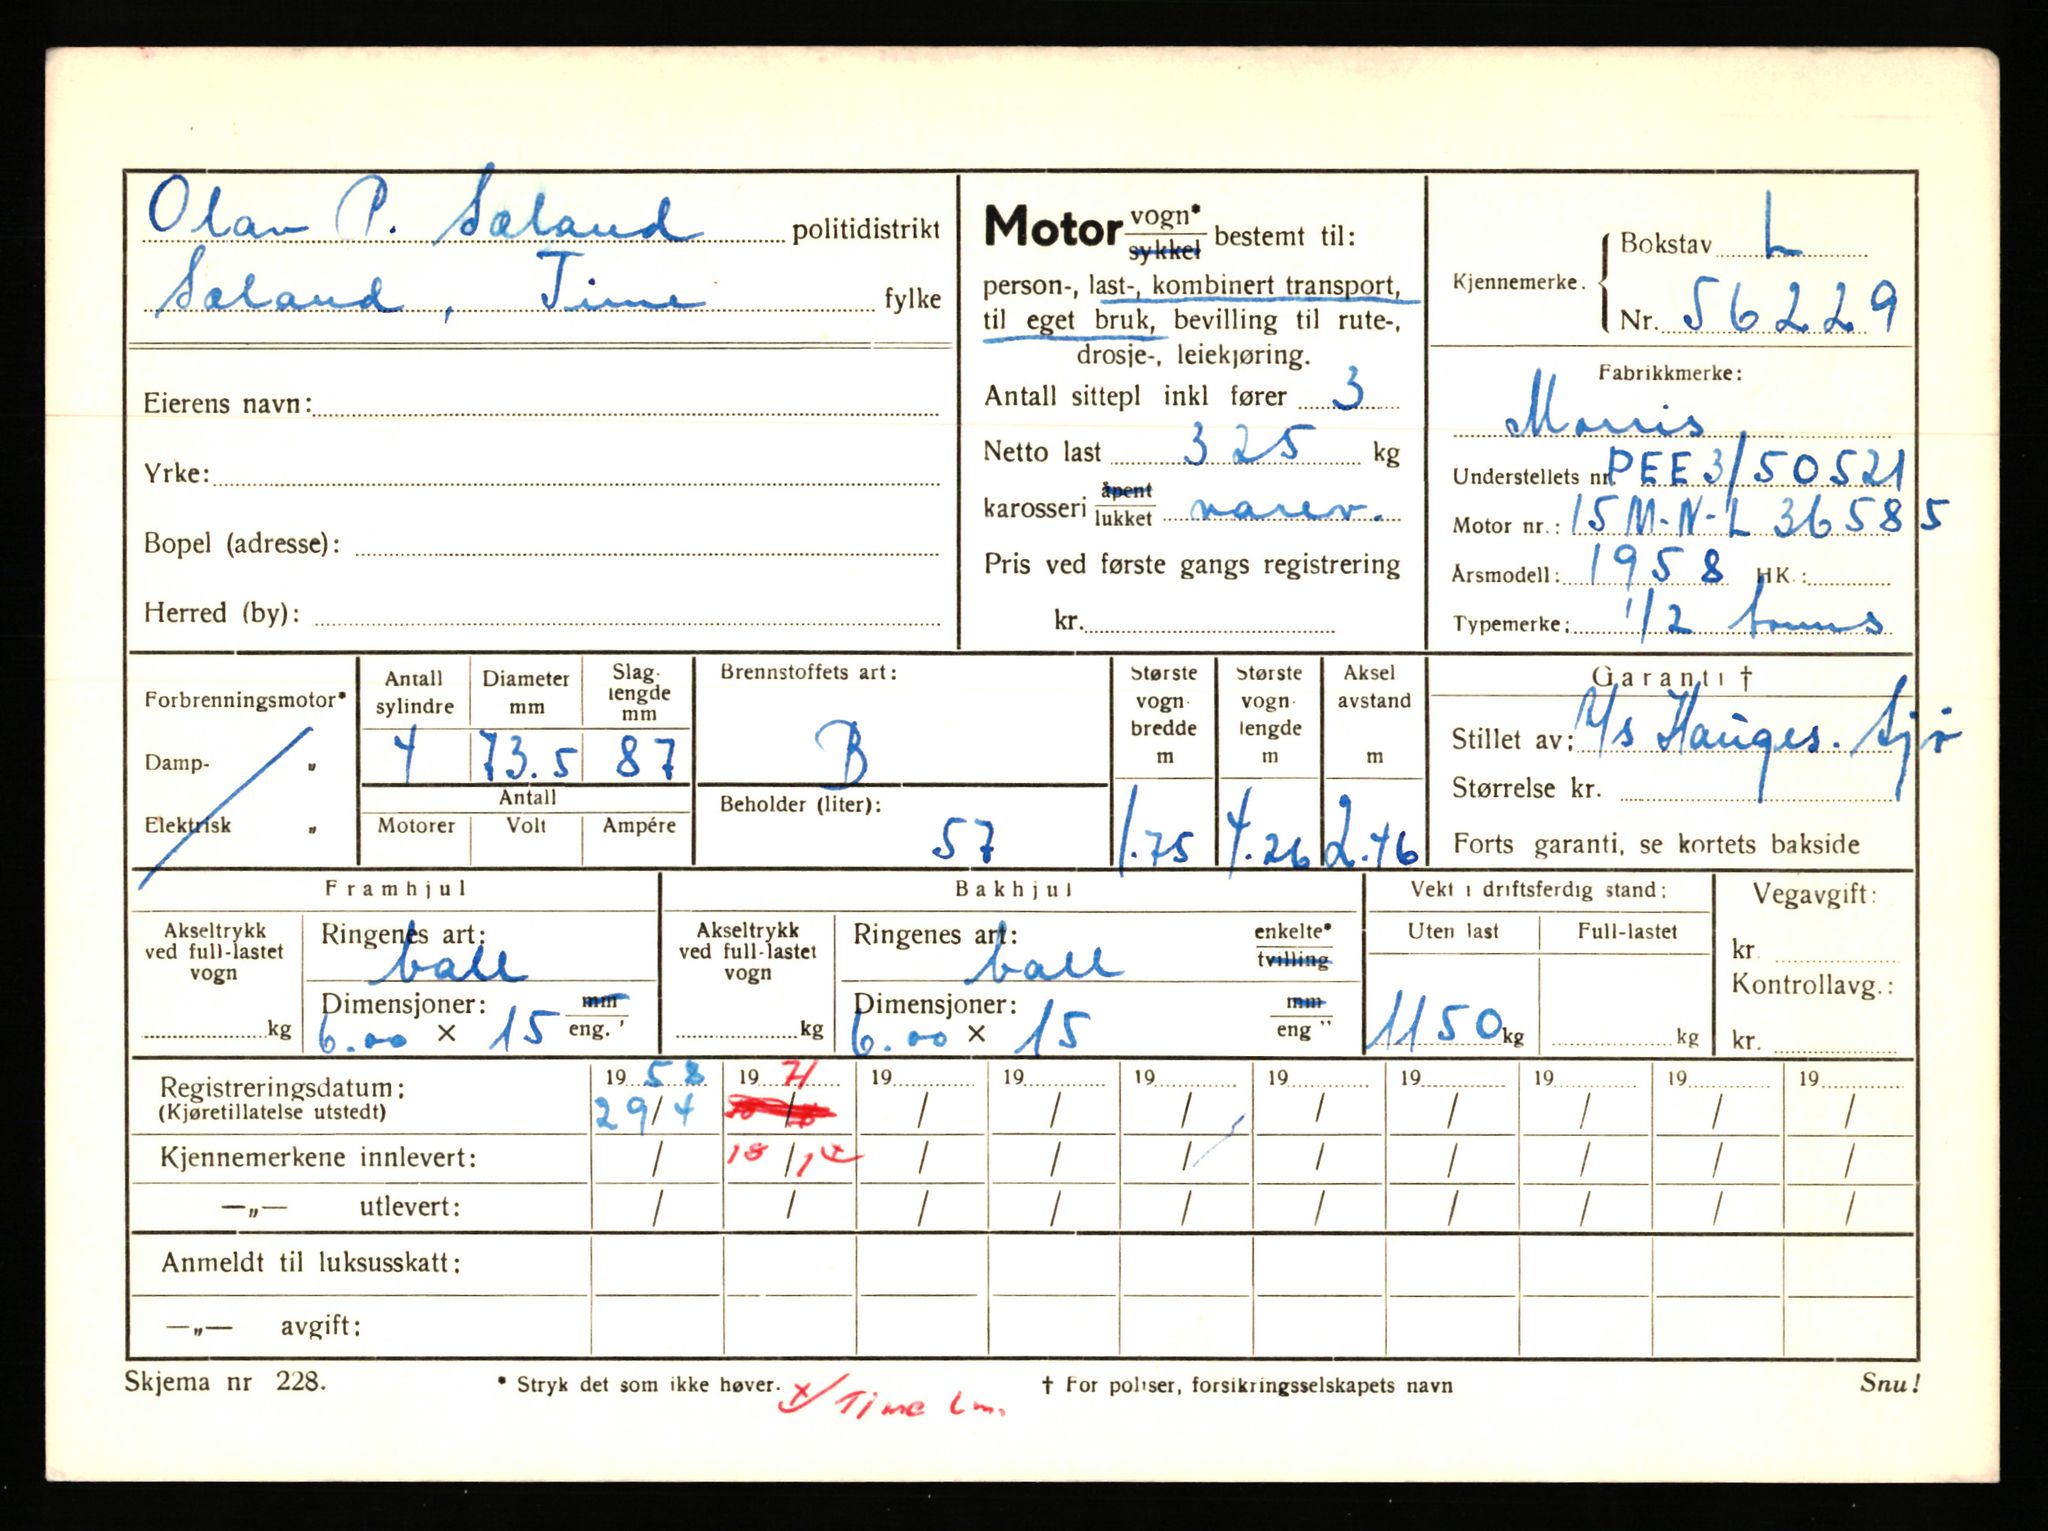 Olav P. Sæland politidistrikt
Sæland, Time fylke
Eierens navn:
Yrke:
Bopel (adresse):
Herred (by):
Motor vogn* sykkel bestemt til:
person-, last-, kombinert transport,
til eget bruk, bevilling til rute-,
drosje-, leiekjøring.
Antall sittepl inkl fører 3
Netto last 325 kg
karosseri åpent lukket varev.
Pris ved første gangs registrering
kr.
Kjennemerke. Bokstav L
Nr. 56229
Fabrikkmerke:
Morris
Understellets nr. PEE3/50521
Motor nr.: 15 M-N-L 36585
Årsmodell: 1958 HK.:
Typemerke: 1/2 tonns
Forbrenningsmotor*
Damp- "
Elektrisk "
Antall sylindre 4
Diameter mm 73.5
Slag-lengde mm 87
Antall
Motorer Volt Ampére
Brennstoffets art:
B
Beholder (liter):
57
Største vogn-bredde m 1.75
Største vogn-lengde m 4.26
Aksel avstand m 2.46
Garanti †
Stillet av: A/s Hauges. Sjø
Størrelse kr.
Forts garanti, se kortets bakside
Framhjul
Akseltrykk ved full-lastet vogn kg
Ringenes art: ball
Dimensjoner: mm
6.00 × 15 eng. "
Bakhjul
Akseltrykk ved full-lastet vogn kg
Ringenes art: ball enkelte* tvilling
Dimensjoner: mm
6.00 × 15 eng "
Vekt i driftsferdig stand:
Uten last Full-lastet
1150 kg kg
Vegavgift:
kr.
Kontrollavg.:
kr.
Registreringsdatum: 19 58 19 71 19 19 19 19 19 19 19 19
(Kjøretillatelse utstedt) 29/4 / / / / / / / / /
Kjennemerkene innlevert: / 18/12 / / / / / / / /
—„— utlevert: / / / / / / / / / /
Anmeldt til luksusskatt:
—„— avgift:
Skjema nr 228. * Stryk det som ikke høver. x/ Time Lm. † For poliser, forsikringsselskapets navn Snu!